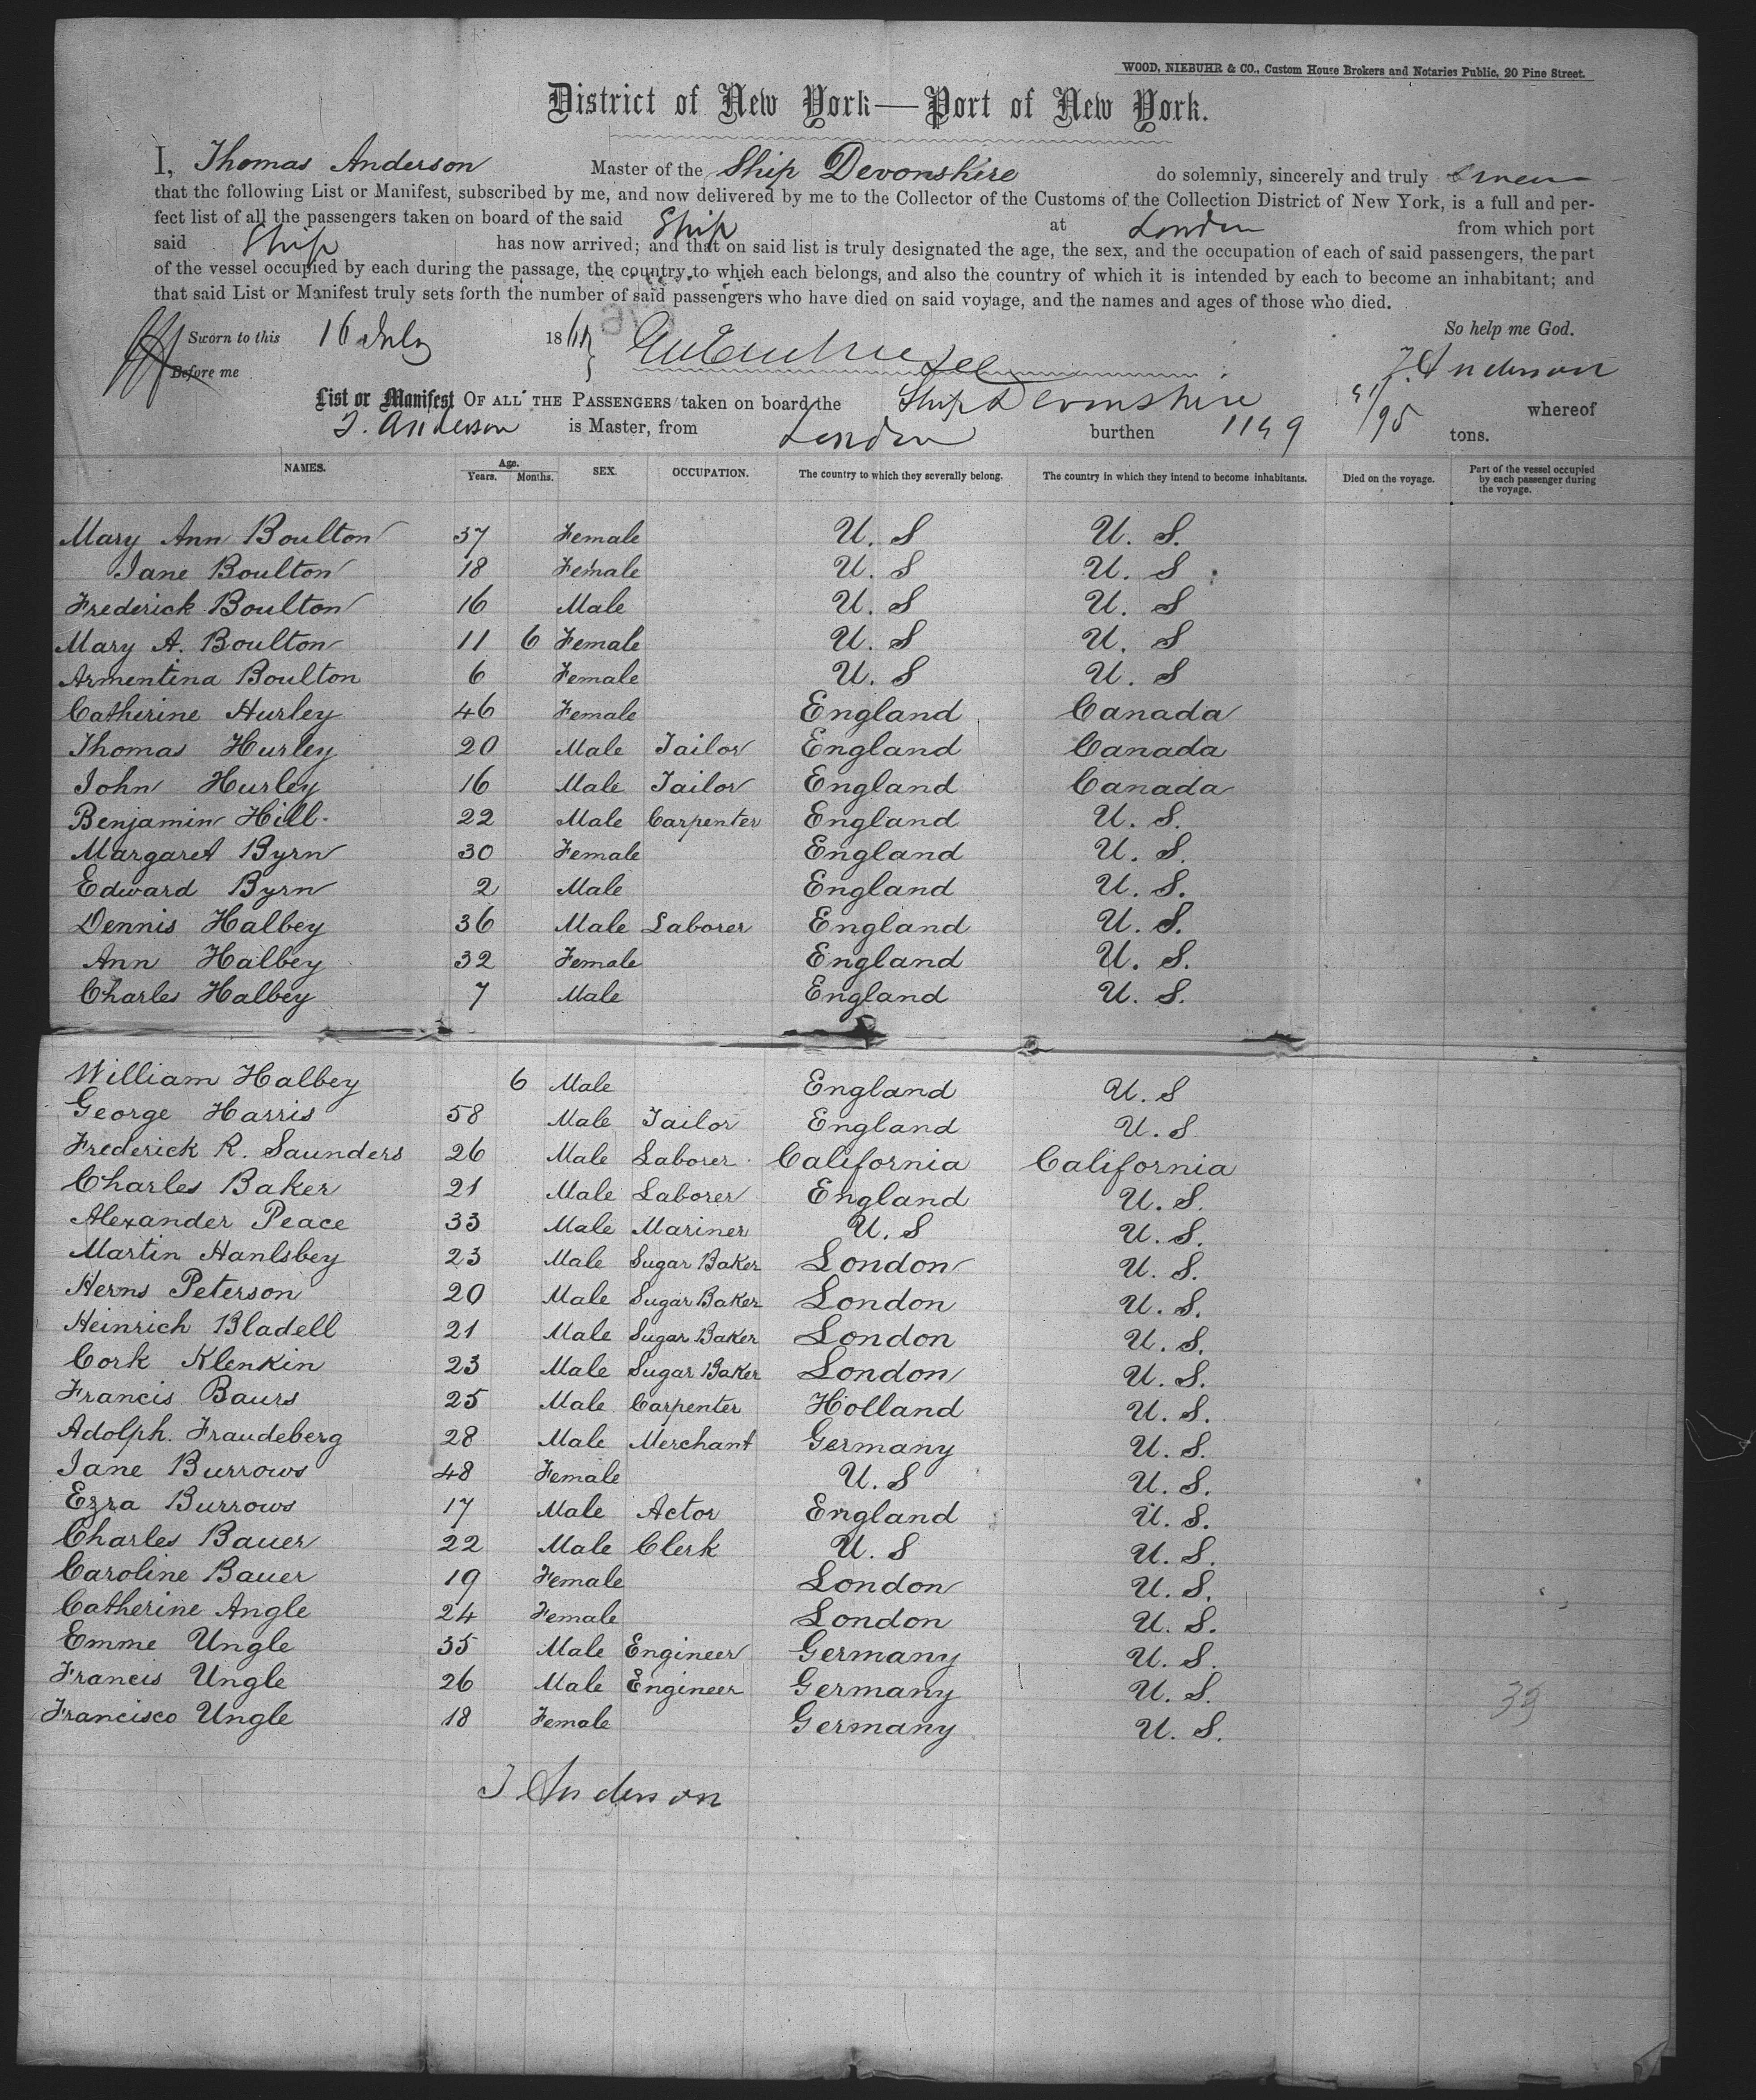 WOOD, NIEBUHR & CO., Custom House Brokers and Notaries Public, 20 Pine Street.
District of New York—Port of New York.
I, Thomas Anderson Master of the Ship Devonshire do solemnly, sincerely and truly
that the following List or Manifest, subscribed by me, and now delivered by me to the Collector of the Customs of the Collection District of New York, is a full and per-
fect list of all the passengers taken on board of the said Ship at London from which port
said Ship has now arrived; and that on said list is truly designated the age, the sex, and the occupation of each of said passengers, the part
of the vessel occupied by each during the passage, the country to which each belongs, and also the country of which it is intended by each to become an inhabitant; and
that said List or Manifest truly sets forth the number of said passengers who have died on said voyage, and the names and ages of those who died.
Sworn to this 16 July 186 So help me God.
Before me T. Anderson
List or Manifest OF ALL THE PASSENGERS taken on board the Ship Devonshire whereof
T. Anderson is Master, from London burthen 1149 /95 tons.
NAMES. Age. Years. Months. SEX. OCCUPATION. The country to which they severally belong. The country in which they intend to become inhabitants. Died on the voyage. Part of the vessel occupied by each passenger during the voyage.
Mary Ann Boulton 37 Female U. S U. S.
Jane Boulton 18 Female U. S U. S
Frederick Boulton 16 Male U. S U. S
Mary A. Boulton 11 6 Female U. S U. S
Armentina Boulton 6 Female U. S U. S
Catherine Hurley 46 Female England Canada
Thomas Hurley 20 Male Tailor England Canada
John Hurley 16 Male Tailor England Canada
Benjamin Hill 22 Male Carpenter England U. S.
Margaret Byrn 30 Female England U. S.
Edward Byrn 2 Male England U. S.
Dennis Halbey 36 Male Laborer England U. S.
Ann Halbey 32 Female England U. S.
Charles Halbey 7 Male England U. S.
William Halbey 6 Male England U. S
George Harris 58 Male Tailor England U. S
Frederick R. Saunders 26 Male Laborer California California
Charles Baker 21 Male Laborer England U. S.
Alexander Peace 33 Male Mariner U. S U. S.
Martin Hanlsbey 23 Male Sugar Baker London U. S.
Herns Peterson 20 Male Sugar Baker London U. S.
Heinrich Bladell 21 Male Sugar Baker London U. S.
Cork Klenkin 23 Male Sugar Baker London U. S.
Francis Baurs 25 Male Carpenter Holland U. S.
Adolph. Fraudeberg 28 Male Merchant Germany U. S.
Jane Burrows 48 Female U. S U. S.
Ezra Burrows 17 Male Actor England U. S.
Charles Bauer 22 Male Clerk U. S U. S.
Caroline Bauer 19 Female London U. S.
Catherine Angle 24 Female London U. S.
Emme Ungle 35 Male Engineer Germany U. S.
Francis Ungle 26 Male Engineer Germany U. S.
Francisco Ungle 18 Female Germany U. S.
T Anderson